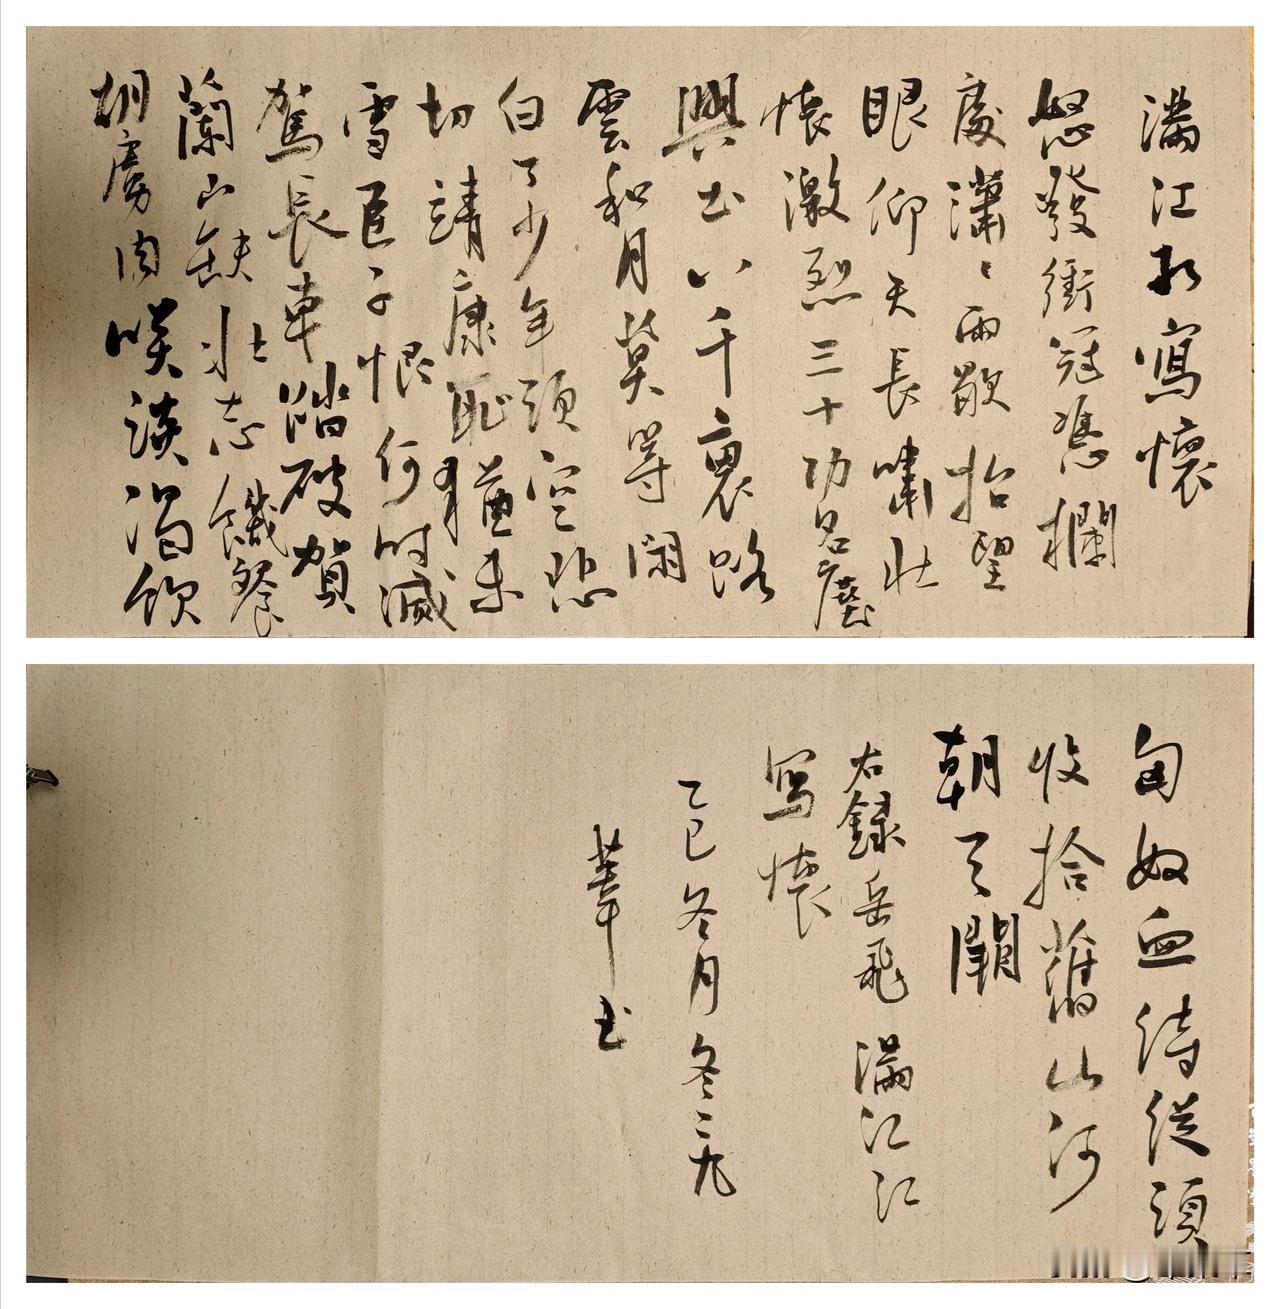 滿江紅寫懷
怒發衝冠憑欄
處瀟〻雨歇抬望
眼仰天長嘯壯
懷激烈三十功名塵
與土八千裏路
雲和月莫等閑
白了少年頭空悲
切靖康恥猶未
雪臣子恨何時滅
駕長車踏破賀
蘭山缺壯志饑餐
胡虜肉咲談渴飲
匈奴血待從頭
收拾舊山河
朝天闕
右錄岳飛滿江红
寫懷
乙巳冬月冬二九
華书